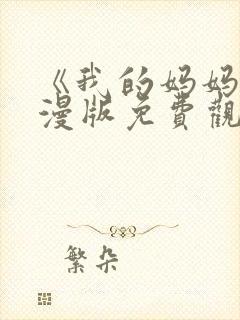 《我的妈妈
漫版免費觀
繁朵